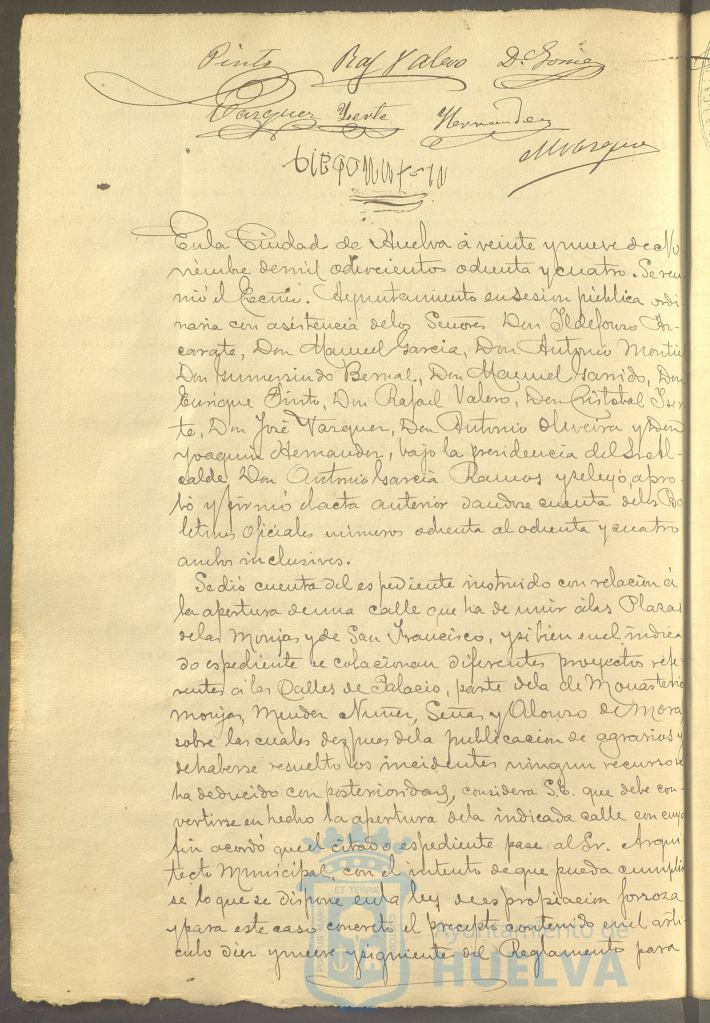 Pinto Raf Valero D. Gomez
Vazquez Yserte Hernandez
M Vazquez
En la Ciudad de Huelva á veinte y nueve de No
viembre de mil ochocientos ochenta y cuatro. Se reu
nió el Excmo. Ayuntamiento en sesion pública ordi
naria con asistencia de los Señores Don Ildefonso Az
carate, Don Manuel Garcia, Don Antonio Montie
Don Gumersindo Bernal, Don Manuel Garrido, Don
Enrique Pinto, Don Rafael Valero, Don Cristobal Yser
te, Don José Vazquez, Don Antonio Oliveira y Don
Yoaquin Hernandez, bajo la presidencia del Sr. Al-
calde Don Antonio Garcia Ramos y se leyó, apro-
bó y firmó el acta anterior dandose cuenta de los Bo
letines Oficiales números ochenta al ochenta y cuatro
ambos inclusives.
Se dió cuenta del espediente instruido con relacion á
la apertura de una calle que ha de unir á las Plazas
de las Monjas y de San Francisco, y si bien en el indica
do espediente se colacionan diferentes proyectos refe
rentes á las Calles de Palacio, parte de la de Monasterio
Monjas, Mendez Nuñez, Señas y Alonso de Mora
sobre las cuales despues de la publicacion de agravios y
de haberse resuelto los incidentes ningun recurso se
ha deducido con posterioridad, considera S.E. que debe con-
vertirse en hecho la apertura de la indicada calle con cuyo
fin acordó que el citado espediente pase al Sr. Arqui
tecto Municipal, con el intento de que pueda cumplir
se lo que se dispone en la ley de espropiacion forzosa
y para este caso concreto el precepto contenido en el arti
culo diez y nueve y siguiente del Reglamento para
ET TERRA
Ayuntamiento de
HUELVA